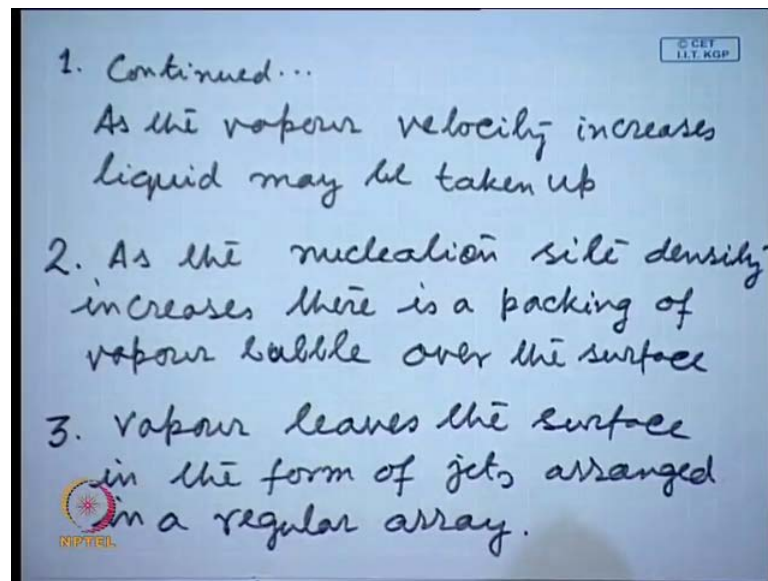 © CET
I.I.T. KGP
1. Continued...
As the vapour velocity increases
liquid may be taken up
2. As the nucleation site density
increases there is a packing of
vapour bubble over the surface
3. Vapour leaves the surface
in the form of jets arranged
in a regular array.
NPTEL